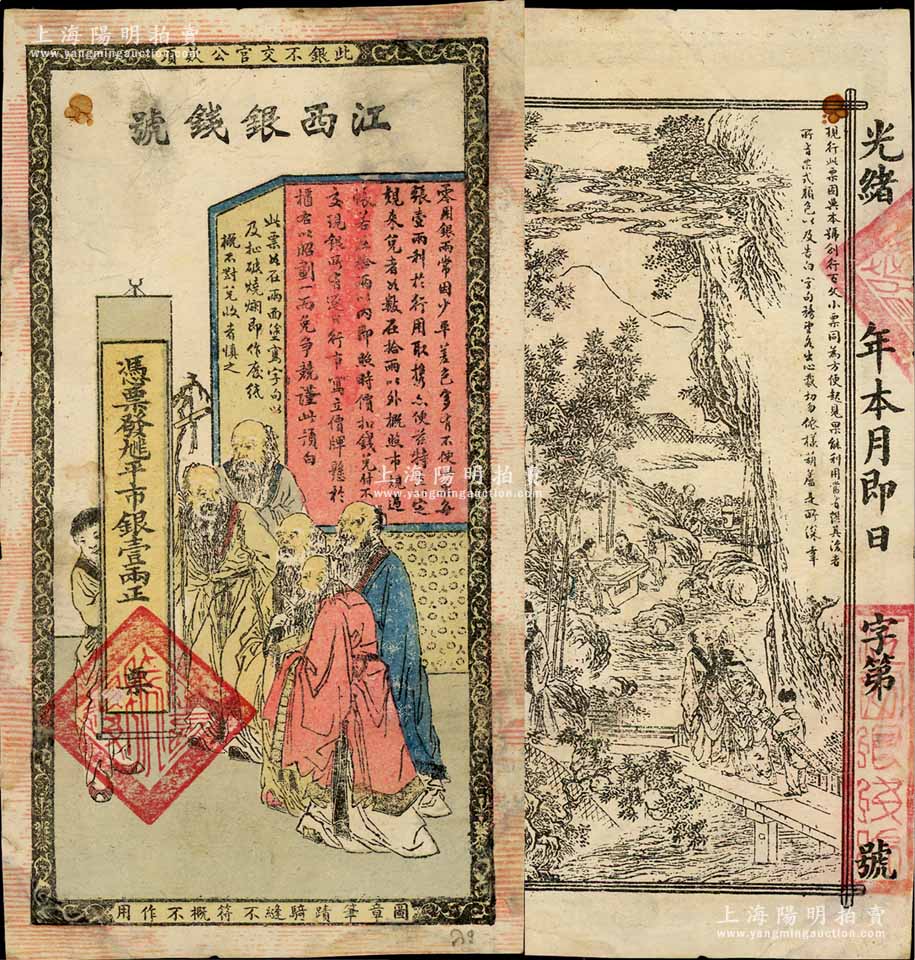 上海陽明拍賣
www.yangmingauction.com
上海陽明拍賣
www.yangmingauction.com
此銀不交官公款項
江西銀錢號
零用銀兩常因少平差色多有不便
張壹兩利於行用取攜亦便茲特定
規來兌者如數在拾兩以外概照市
拾兩以內即照時價扣錢兌付不
支現銀所有逐日行市寫立價牌懸於
櫃右以昭劃一而免爭競謹此預白
此票如在兩面塗寫字句以
及扯破燒爛即作廢紙
概不對兌收者慎之
憑票發
平市銀壹兩正
票
圖章筆蹟騎縫不符概不作用
現行此票因與本號刊行百文小票同為方便起見果能利用當有讚美法者
所有票式顏色以及告白字句務望各出心裁切勿依樣葫蘆是所深幸
光緒 年本月即日 字第 號
上海陽明拍賣
www.yangmingauction.com
上海陽明拍賣
www.yangmingauction.com